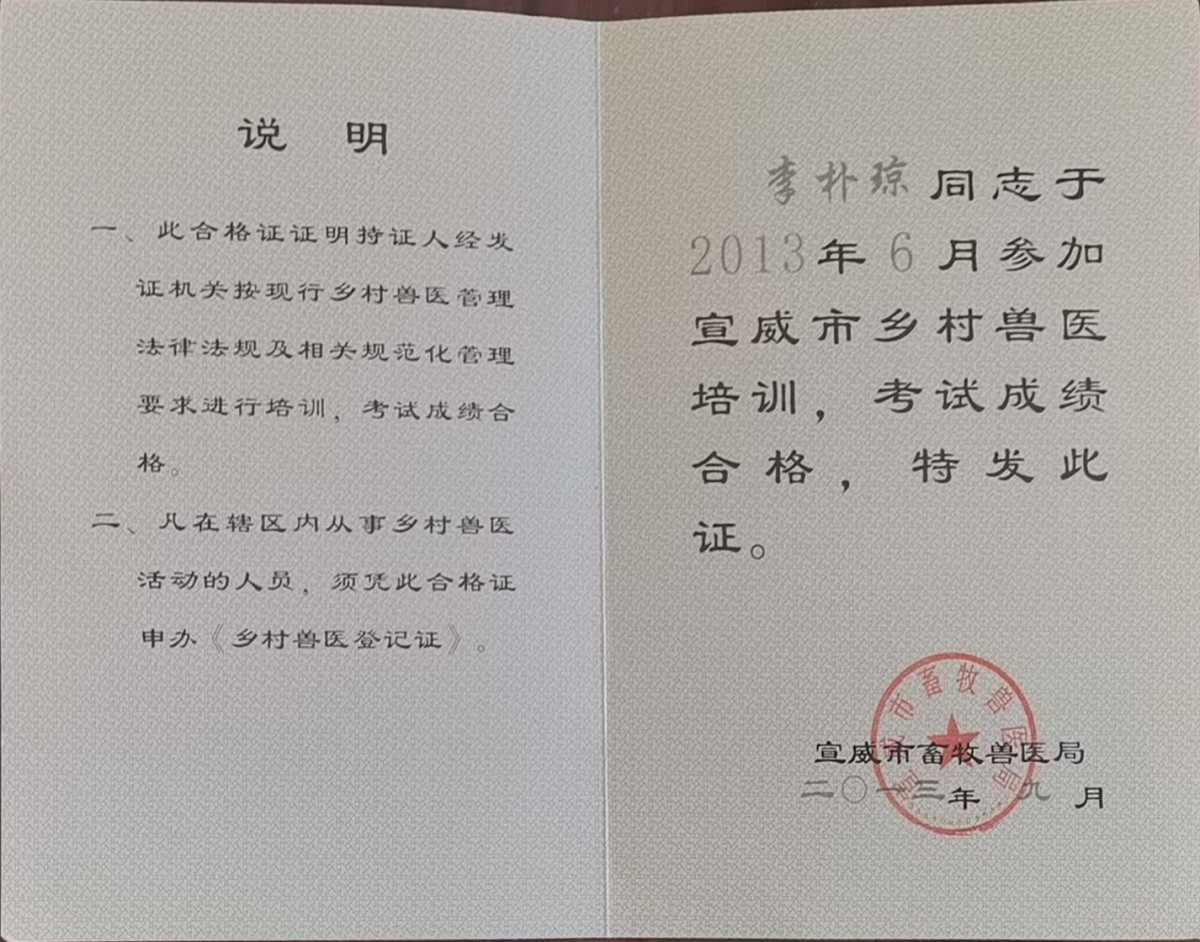 说 明
一、此合格证证明持证人经发
证机关按现行乡村兽医管理
法律法规及相关规范化管理
要求进行培训，考试成绩合
格。
二、凡在辖区内从事乡村兽医
活动的人员，须凭此合格证
申办《乡村兽医登记证》。
李朴琼同志于
2013年6月参加
宣威市乡村兽医
培训，考试成绩
合格，特发此
证。
宣威市畜牧兽医局
宣威市畜牧兽医局
二〇一三年 九 月